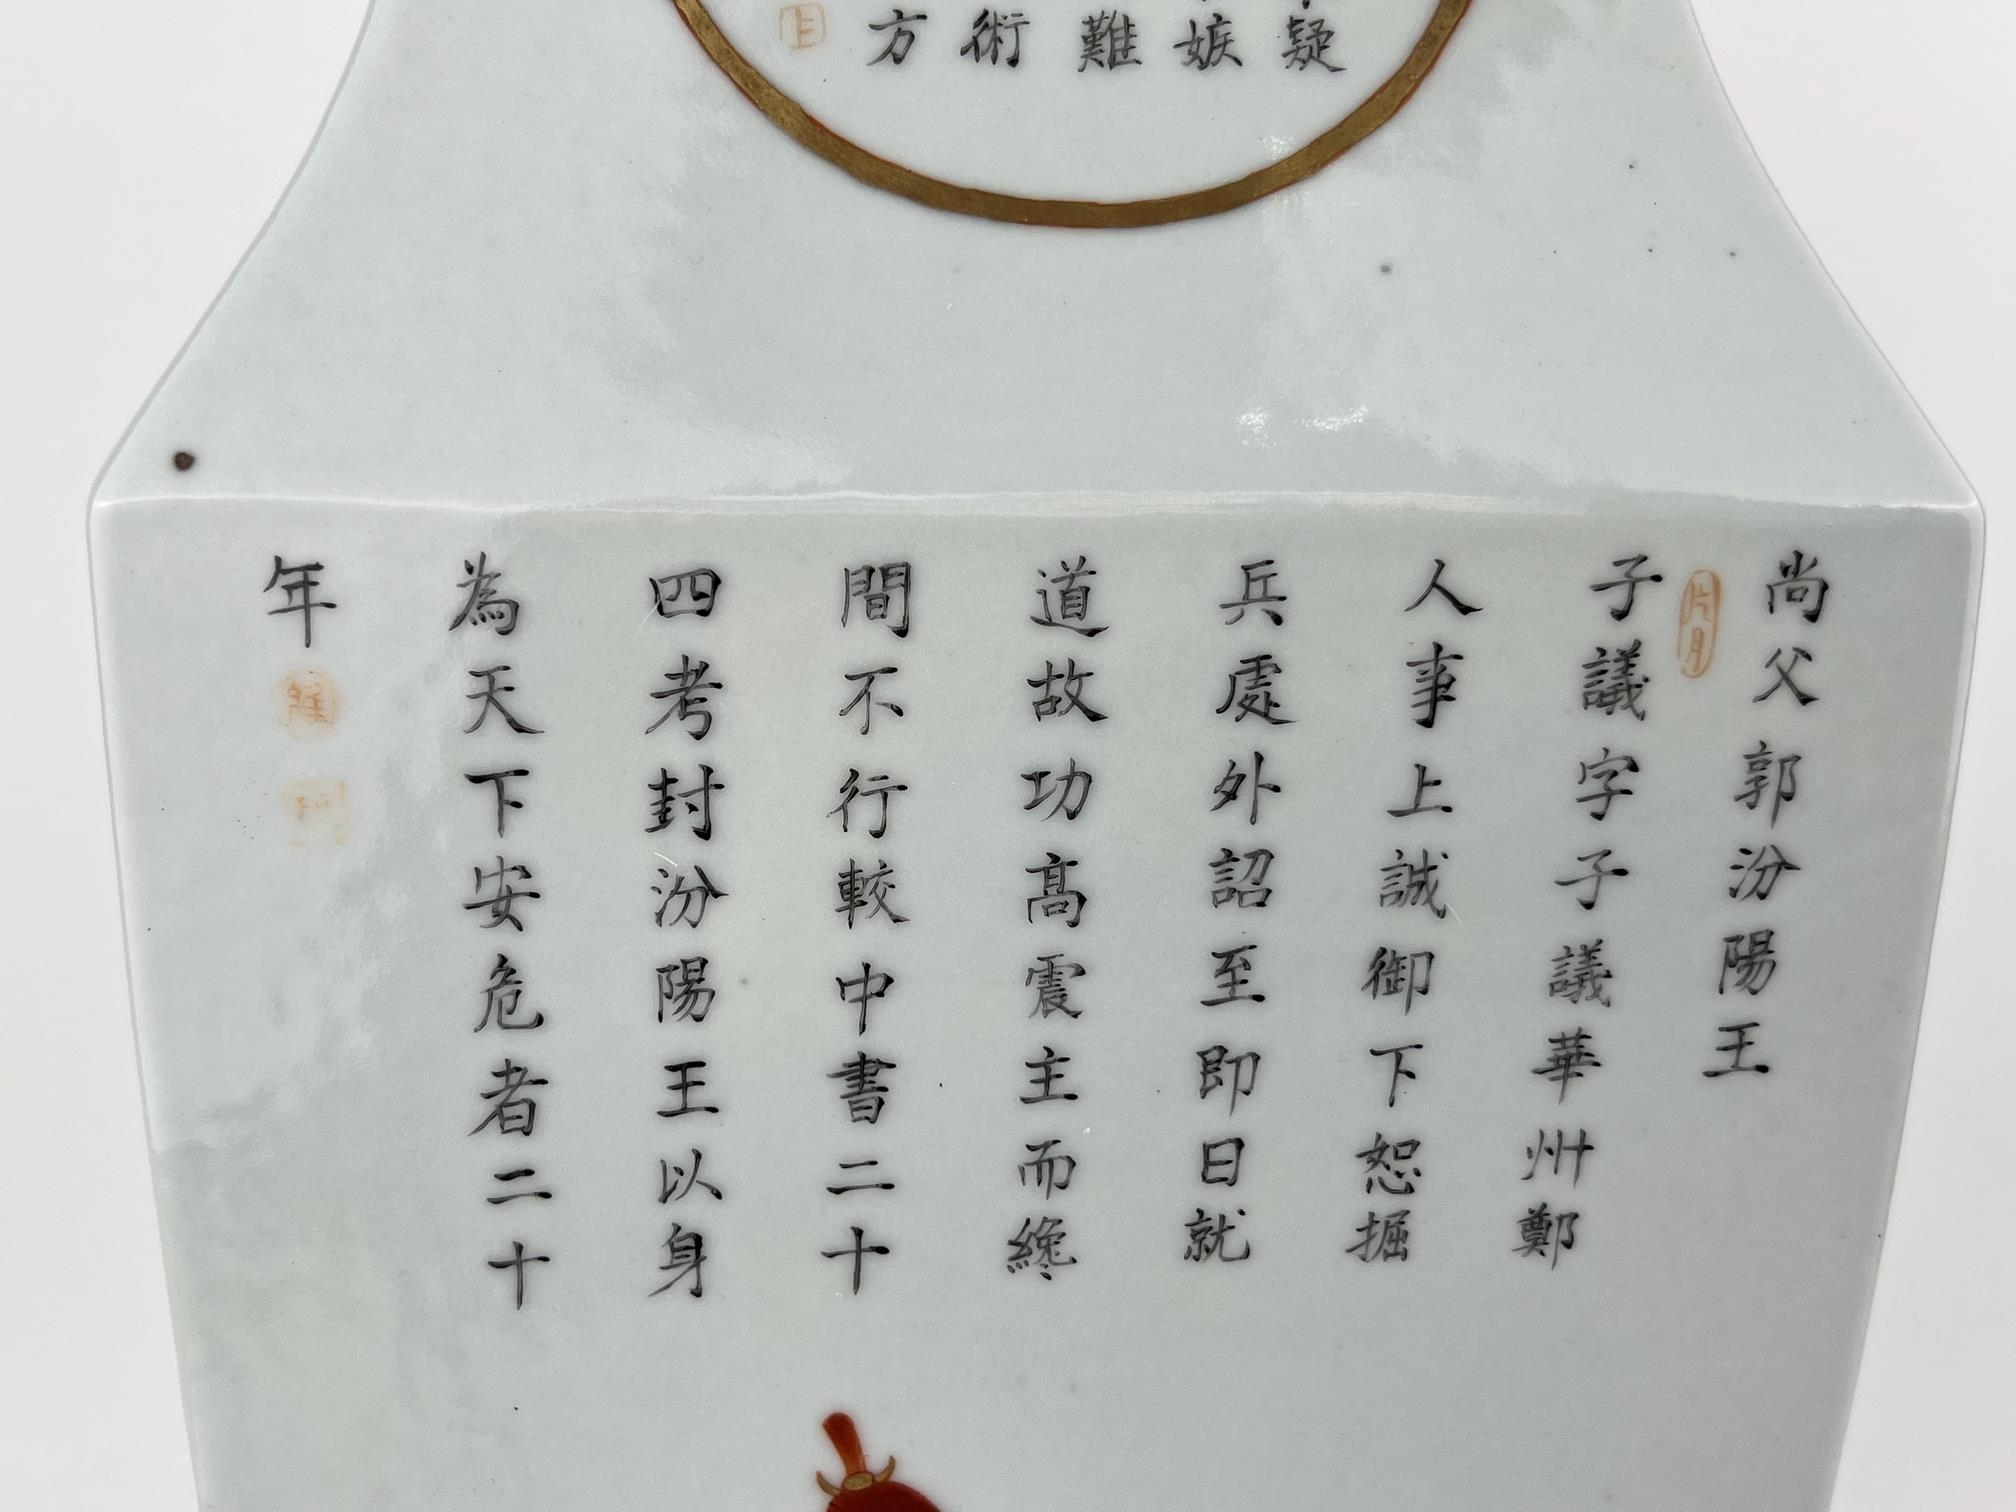 疑
嫉
難
術
方
尚父郭汾陽王
片月
子議字子議華州鄭
人事上誠御下恕掘
兵處外詔至即日就
道故功髙震主而纔
間不行較中書二十
四考封汾陽王以身
為天下安危者二十
年